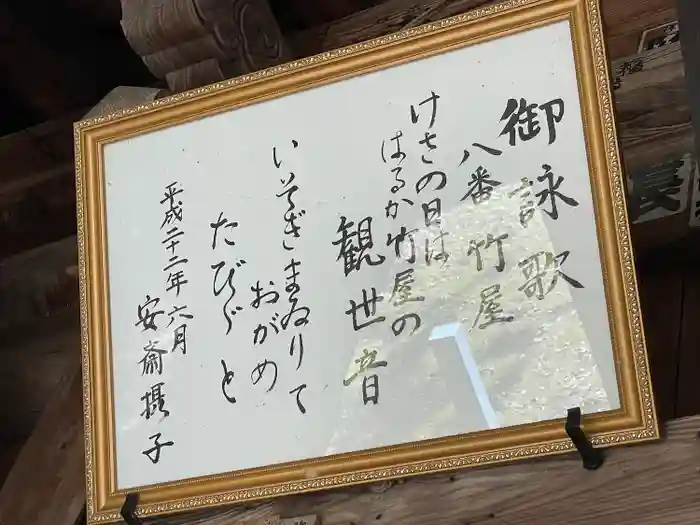 御詠歌
八番竹屋
けさの日は
はるか竹屋の
観世音
いそぎまゐりて
おがめ
たびゞと
平成二十二年六月
安齋摂子
長